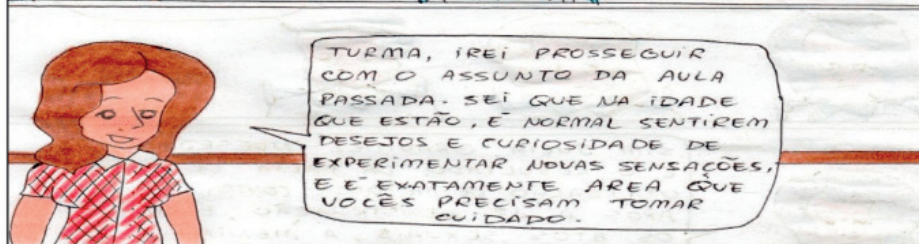 TURMA, IREI PROSSEGUIR
COM O ASSUNTO DA AULA
PASSADA. SEI QUE NA IDADE
QUE ESTÃO, É NORMAL SENTIREM
DESEJOS E CURIOSIDADE DE
EXPERIMENTAR NOVAS SENSAÇÕES,
E É EXATAMENTE AREA QUE
VOCÊS PRECISAM TOMAR
CUIDADO.